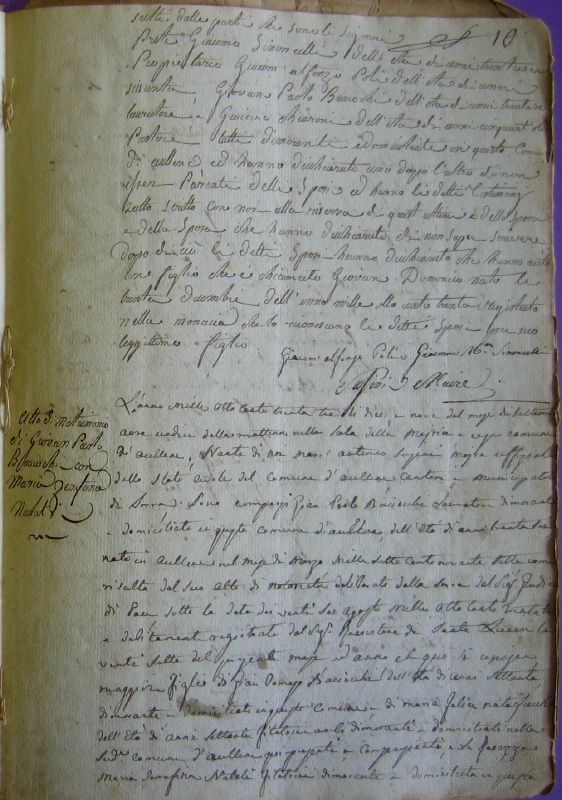 scelti dalle parti che sono li Signori
10
Prete Giacomo Simoncelli dell'Età di anni trentasei
Proprietario Giacom'alfonzo Poli dell'Età di anni
sessanta Giovan Paolo Bacciochi dell'Età di anni trentasei
lavoratore e Chiaroni dell'Età di anni cinquant'
Pastore tutti dimoranti e domiciliati in questo Comune
di aullene ed hanno dichiarato uno doppo l'altro di non
esser Parenti delli Sposi ed hanno li detti Testimonj
sotto scritto con noi alla riserva di quest'ultimo e dello Sposo
e della Sposa che hanno dichiarato di non saper scrivere
doppo di ciò li detti Sposi hanno dichiarato che hanno avuto
un figlio che è chiamato Giovan Domenico nato li
trenta dicembre dell'anno mille otto cento trenta registrato
nella che lo riconoscano li detti Sposi per suo
leggittimo figlio
Giacom'alfonzo Poli Giacomo Simoncelli
Maire
Atto di matrimonio
di Giovan Paolo
Bacciochi con
Maria Serafina
Natali
L'anno mille otto cento trenta tre li dieci e nove del mese di Settembre
a ore undici della mattina nella Sala della Mejria e comune
d'aullene, Nante di noi Mejre uffiziale
dello Stato civile del Comune d'aullene Cantone e municipalità
di Serra Sono comparsi Gian Paolo Bacciochi Lavoratore dimorante
e domiciliato in questo comune d'aullene, dell'Età di anni trenta sei
nato in aullene nel mese di Marzo mille sette cento novanta sette come
risulta dal suo atto di notorietà deliberato dalla Serra dal Sigr Giudice
di Pace sotto la data dei venti sei agosto mille otto cento trenta tre
e debitamente registrato dal Sigr Ricevitore di Santa Lucia li
venti sette del mese ed anno
maggiore figlio di Gian Bacciochi dell'Età di anni settanta
dimorante e domiciliato in questo Comune e di Maria Felice nata
dell'Età di anni settanta filatrice ambi dimoranti e domiciliati nella
Sud.a comune d'aullene qui presenti e la Ragazza
Maria Serafina Natali filatrice dimorante e domiciliata in questa